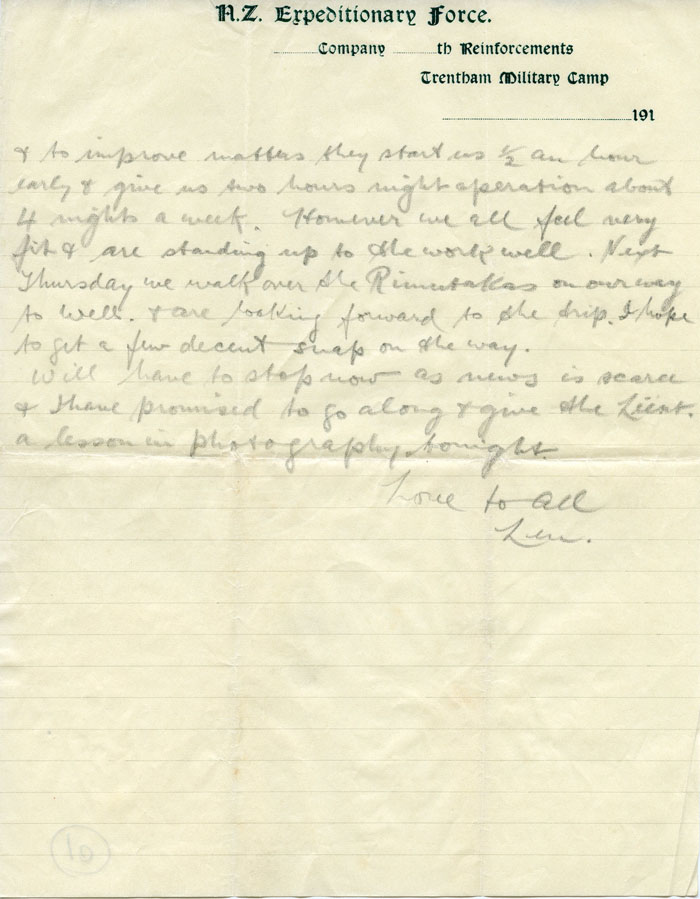 N.Z. Expeditionary Force.
Company th Reinforcements
Trentham Military Camp
191
& to improve matters they start us ½ an hour
early & give us two hours night operation about
4 nights a week. However we all feel very
fit & are standing up to the work well. Next
Thursday we walk over the Rimutakas on our way
to Well. & are looking forward to the trip. I hope
to get a few decent snap on the way.
Will have to stop now as news is scarce
& I have promised to go along & give the Lieut.
a lesson in photography tonight.
Love to all
Len.
10